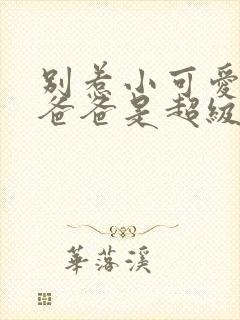 别惹小可爱
爸爸是超级
華落溪